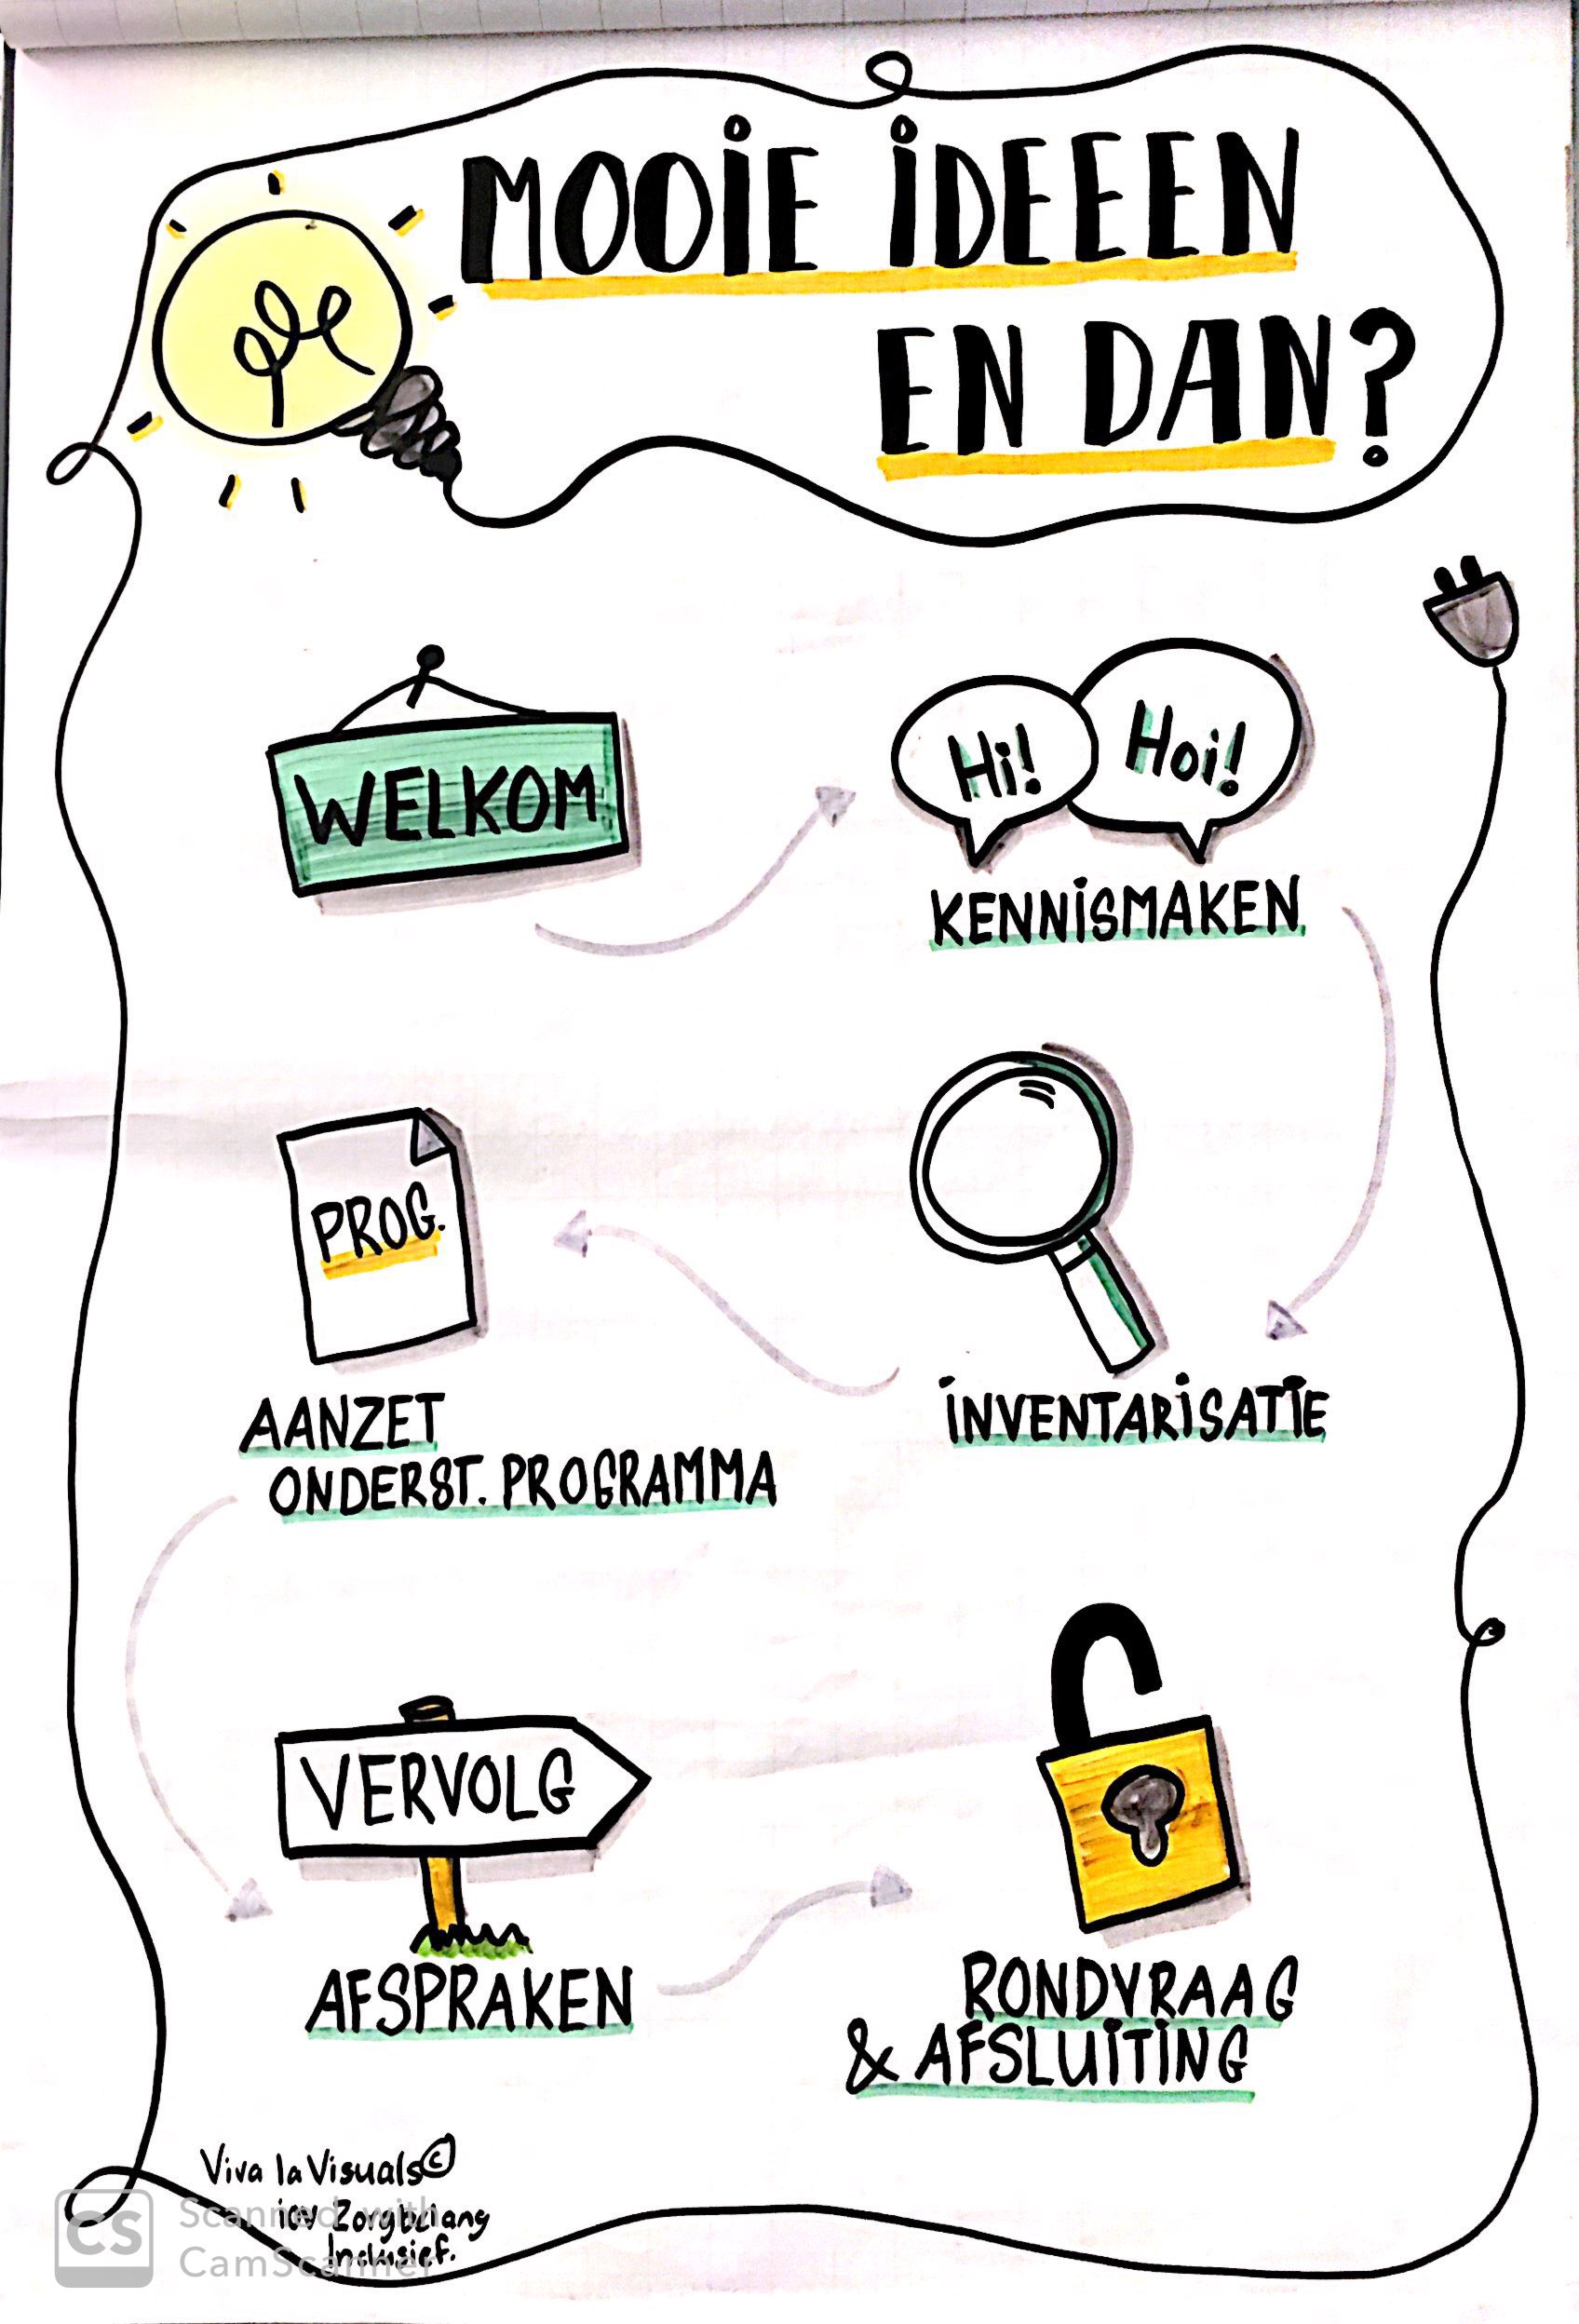 MOOIE IDEEEN
EN DAN?
WELKOM
Hi! Hoi!
KENNISMAKEN
PROG.
AANZET
ONDERST. PROGRAMMA
INVENTARISATIE
VERVOLG
AFSPRAKEN
RONDVRAAG
& AFSLUITING
Viva la Visuals©
Zorgbelang
Inclusief.
CS
Scanned with
CamScanner